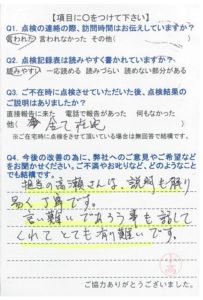 【項目に〇をつけて下さい】
Q1. 点検の連絡の際、訪問時間はお伝えしていますか？
言われた 言われなかった その他（
Q2. 点検記録表は読みやすく書かれていますか？
読みやすい 一応読める 読みづらい 読めない部分がある
Q3. ご不在時に点検させていただいた後、点検結果の
ご説明はありましたか？
直接報告に来た 電話で報告があった 何もなかった
他（
※ご在宅時に点検させて頂いている場合は無回答で結構です。
Q4. 今後の改善の為に、弊社へのご意見やご希望などを
お聞かせください。ご不満やお叱りなど、どのような
ことでも結構です。
担当の高瀬さんは、説明も解り
易く丁寧です。
言い難いであろう事も話して
くれてとても有り難いです。
ご協力ありがとうございました。